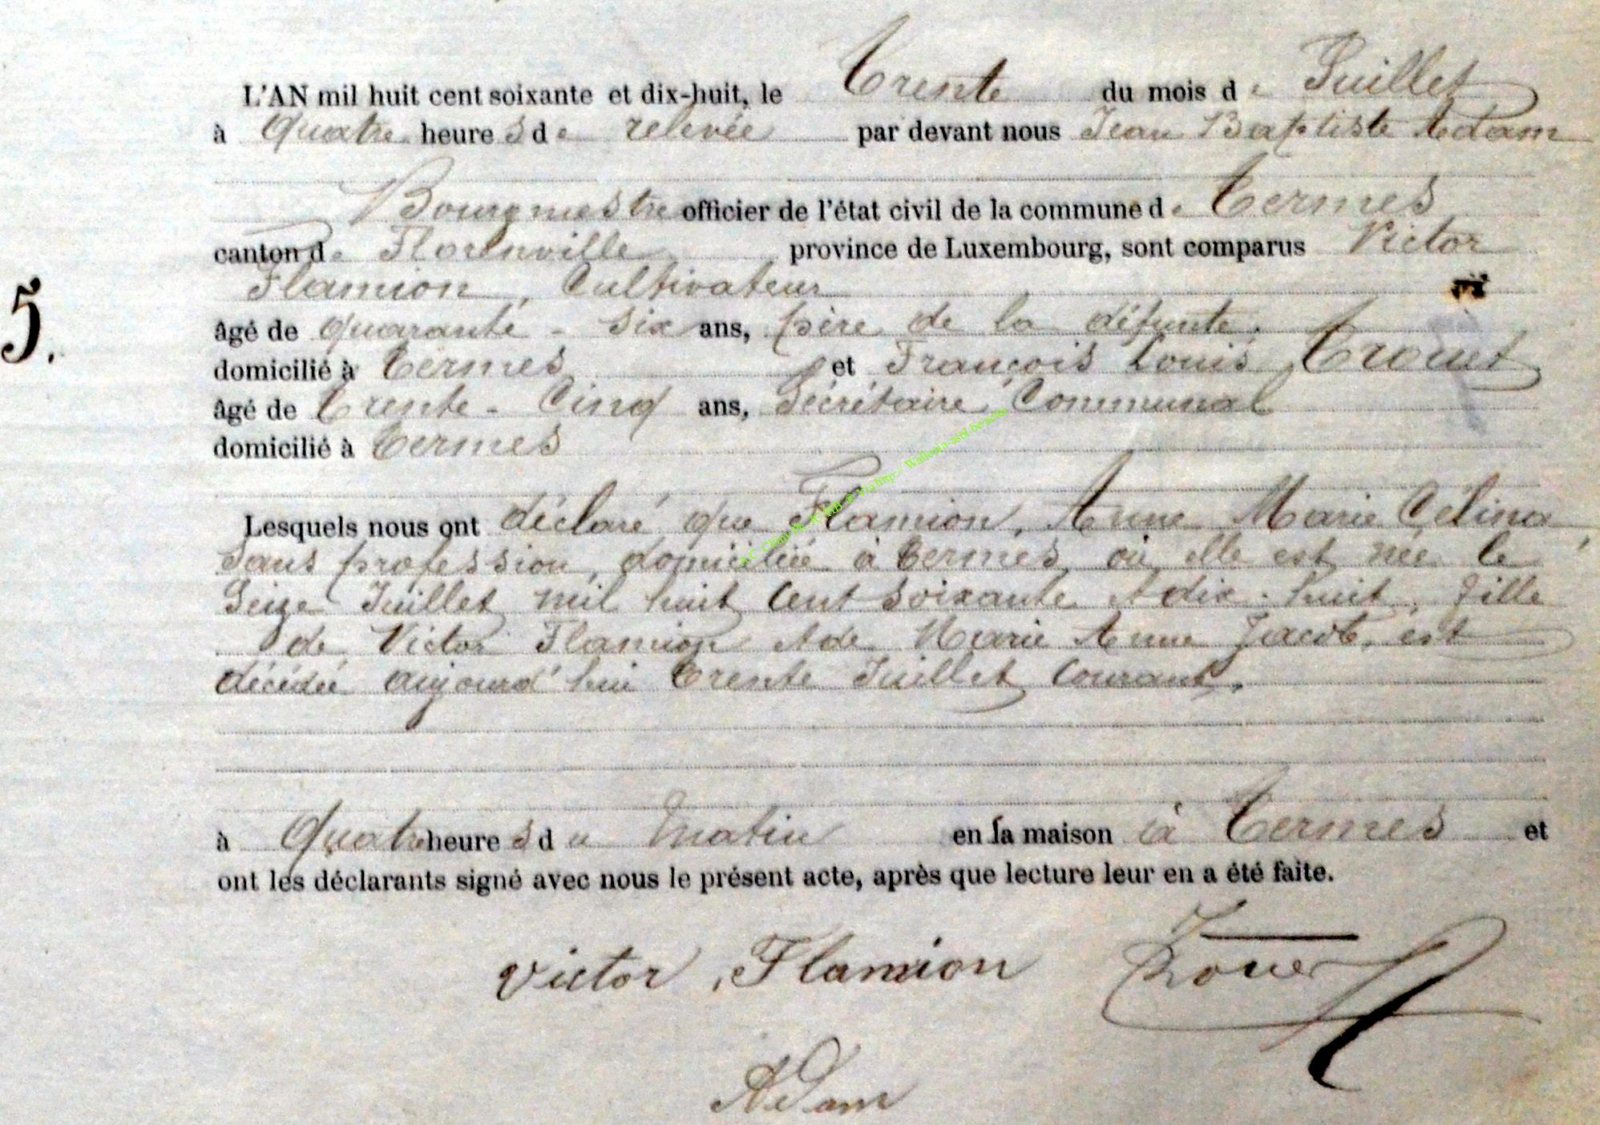 L'AN mil huit cent soixante et dix-huit, le Trente du mois de Juillet
à Quatre heures de relevée par devant nous Jean Baptiste Adam
Bourgmestre officier de l'état civil de la commune de Termes
canton de Florenville province de Luxembourg, sont comparus Victor
Flamion, Cultivateur
5.
âgé de quarante-six ans, père de la défunte,
domicilié à Termes et François Louis Trouet
âgé de trente-Cinq ans, Sécrétaire Communal
domicilié à Termes
Lesquels nous ont déclaré que Flamion, Anne Marie Célina,
sans profession, domiciliée à Termes, où elle est née le
Seize Juillet mil huit Cent Soixante et dix-huit, fille
de Victor Flamion et de Marie Anne Jacob, est
décédée aujourd'hui trente Juillet Courant,
à Quatre heures du Matin en sa maison à Termes et
ont les déclarants signé avec nous le présent acte, après que lecture leur en a été faite.
Victor, Flamion Trouet
Adam